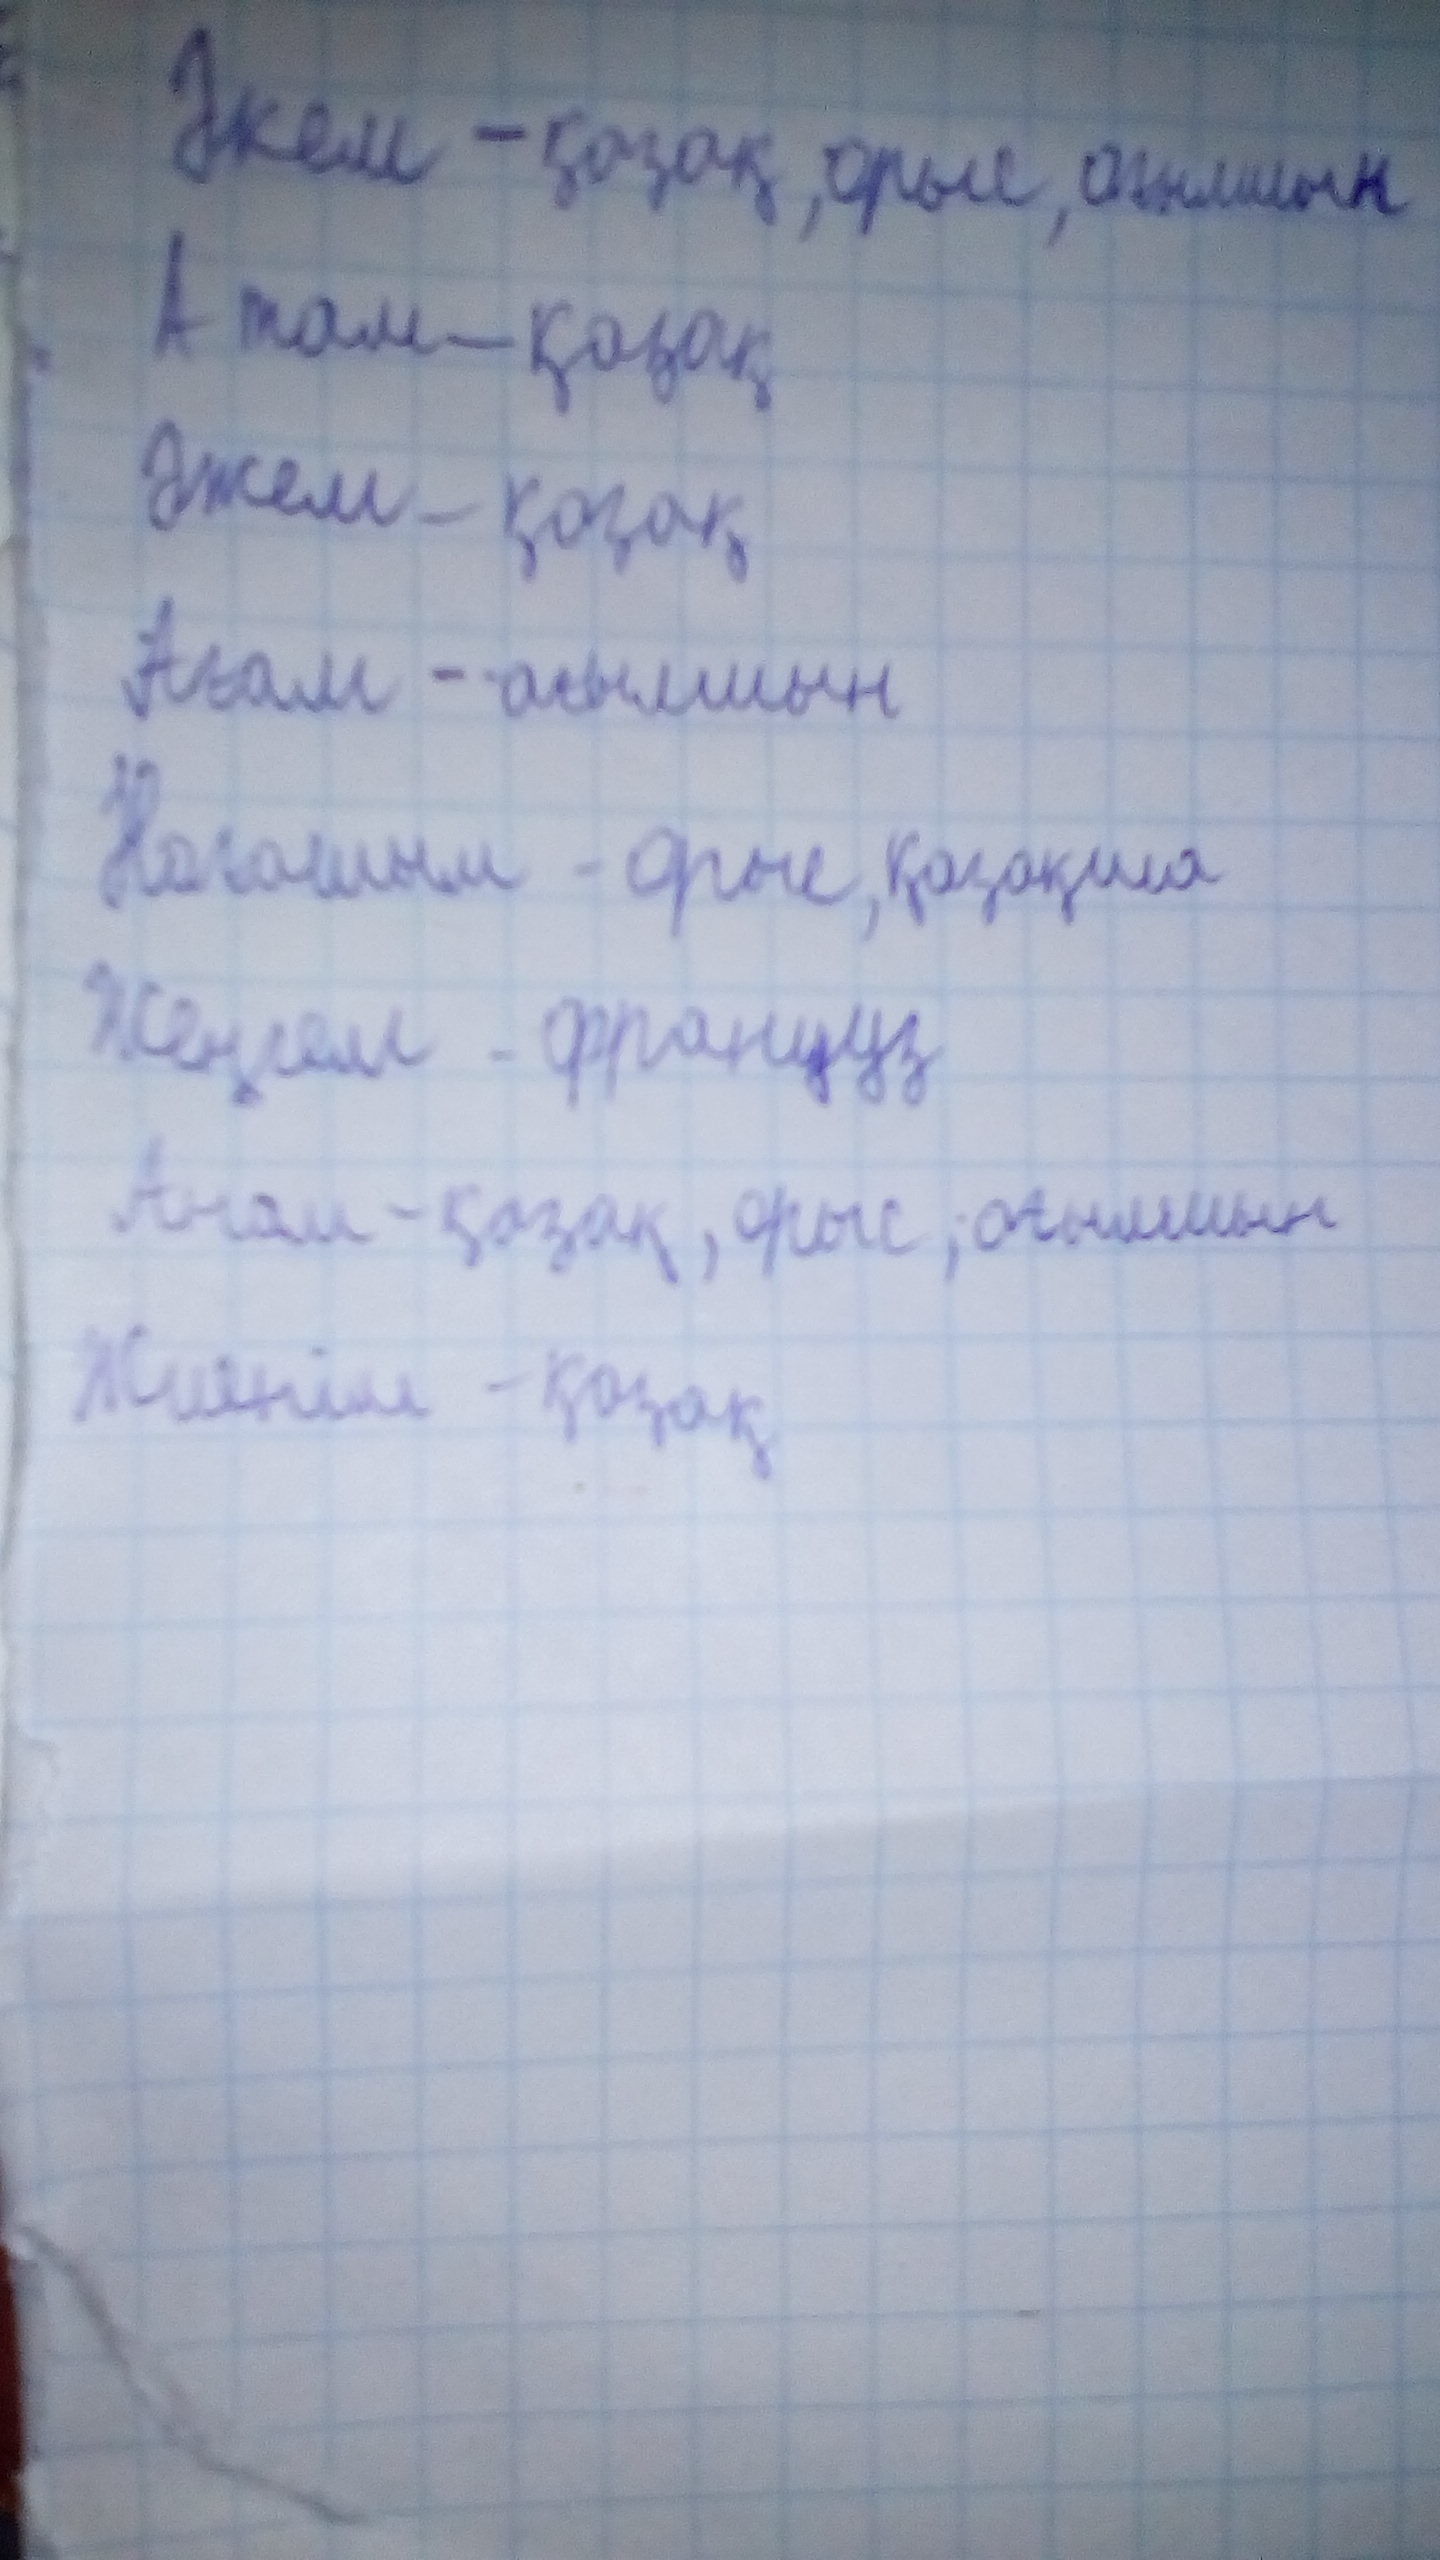 Әкем - қазақ, орыс, ағылшын
Атам - қазақ
Әжем - қазақ
Ағам - ағылшын
Нағашым - орыс, қазақша
Жеңгем - француз
Анам - қазақ, орыс, ағылшын
Жиенім - қазақ